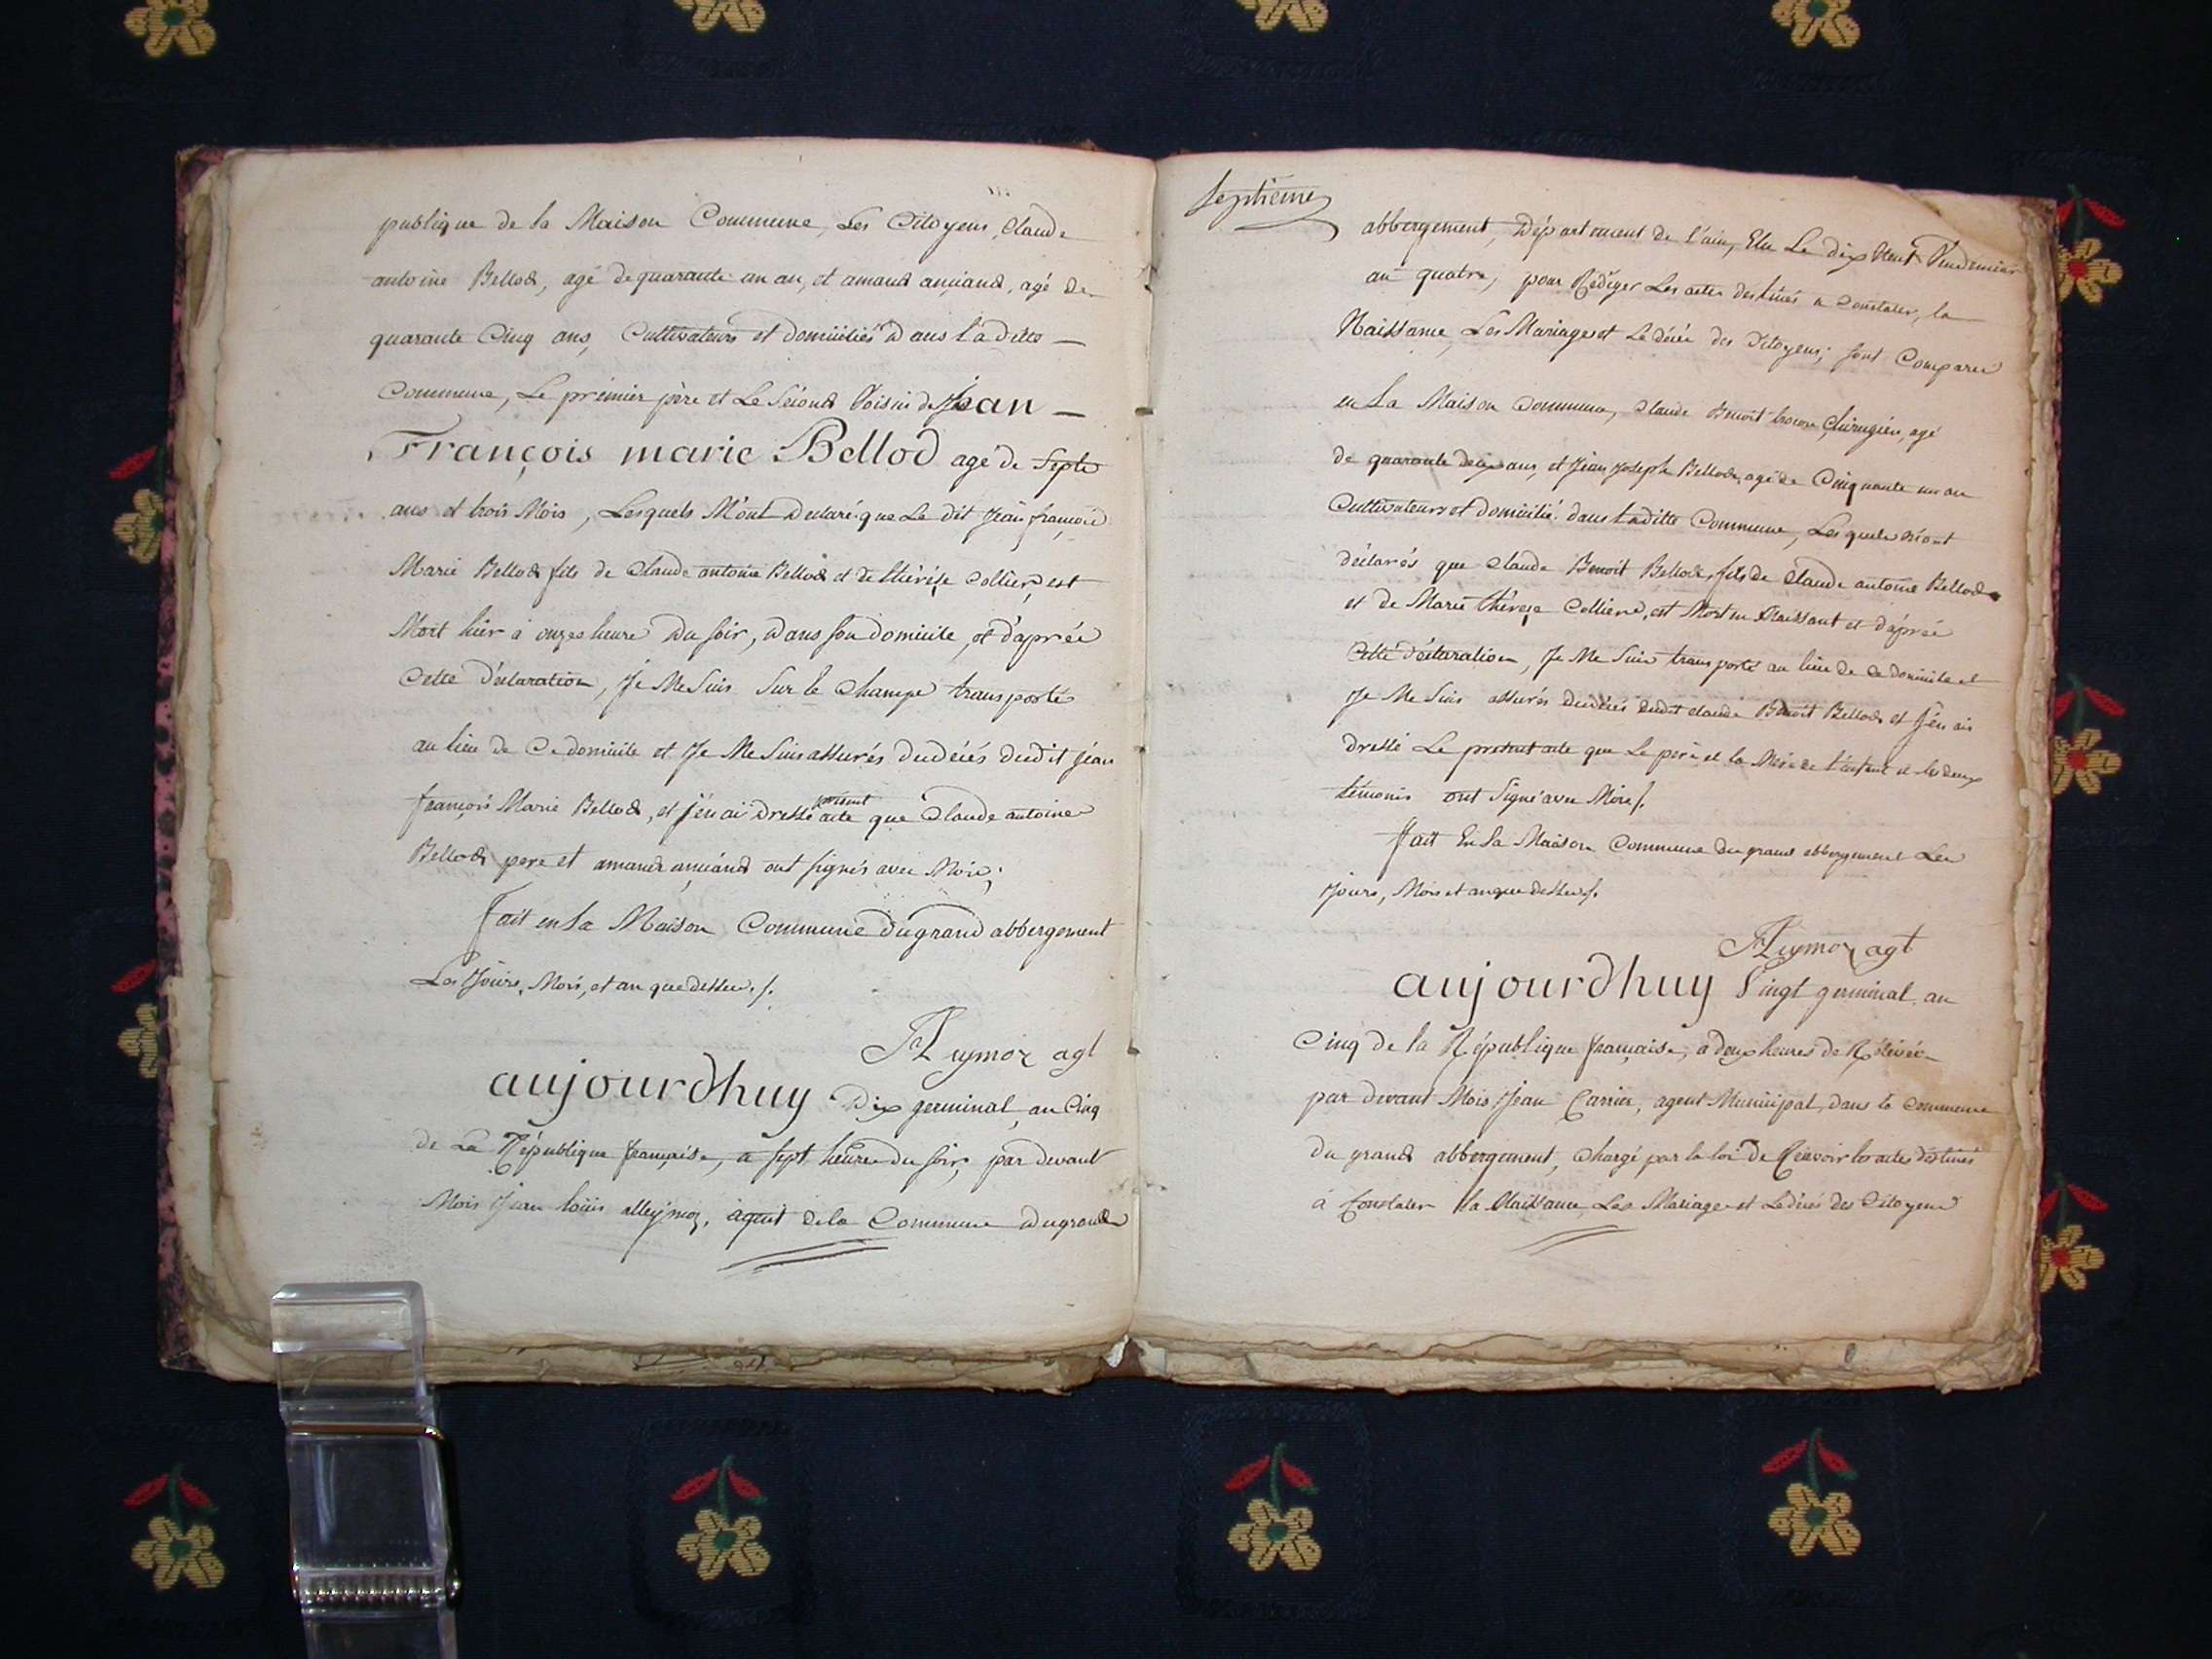 publique de la Maison Commune, Les Citoyens, Claude
antoine Bellod, agé de quarante un an, et amand anciand, agé de
quarante Cinq ans, Cultivateurs et domiciliés dans ladite
Commune, Le prémier père et Le Sécond Voisin de Jean
François marie Bellod agé de Septs
ans et trois Mois, Lesquels M'ont declaré que Le dit Jean françois
Marie Bellod fils de Claude antoine Bellod et de thérése Collier, est
Mort hier à onze heure du soir, dans son domicile, et d'aprés
Cette Déclaration, Je Me Suis Sur le Champs transporté
au lieu de Ce domicile et Je Me Suis assurés du décés dudit Jean
françois Marie Bellod, et J'en ai dressé present acte que Claude antoine
Bellod pere et amand anciand ont signés avec Moi;
fait en La Maison Commune du grand abbergement
Les Jours, Mois, et an que dessus ./.
agt
aujourdhuy Dix germinal an Cinq
de La République française, a sept heures du soir, par devant
Mois Jean louis alleymoz, agent de la Commune du grand
Septieme
abbergement, Département de l'ain, Elu Le dix Neuf Vendemiaire
an quatre, pour Rédiger Les actes destinés a Constater, la
Naissance, Les Mariages et Le décés des Citoyens; sont Comparu
en La Maison Commune, Claude Benoit Chirugien, agé
de quarante deux ans, et Jean Joseph Bellod, agé de Cinquante un an
Cultivateurs et domicilié dans Laditte Commune, Lesquels M'ont
déclarés que Claude Benoit Bellod, fils de Claude antoine Bellod
et de Marie thérese Collier, est Mort en Naissant et d'aprés
Cette déclaration, Je Me Suis transporté au lieu de Ce domicile et
Je Me Suis assurés du décés dudit Claude Benoit Bellod et J'en ais
dressé Le present acte que Le pere et la Mére de l'enfant et les deux
témoins ont Signé avec Mois ./.
fait En La Maison Commune du grand abbergement Les
Jours, Mois et an que dessus ./.
agt
aujourdhuy Vingt germinal, an
Cinq de la République française, a deux heures de Rélévée
par devant Mois Jean Carrier, agent Municipal, dans la Commune
du grand abbergement, Chargé par la loi de Recevoir les actes destinés
à Constater la Naissance, Les Mariages et Le décés des Citoyens